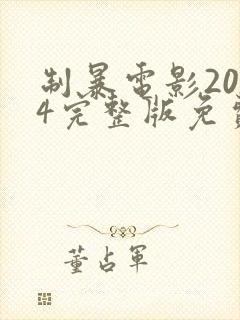 制暴電影20
4完整版免費
董占軍